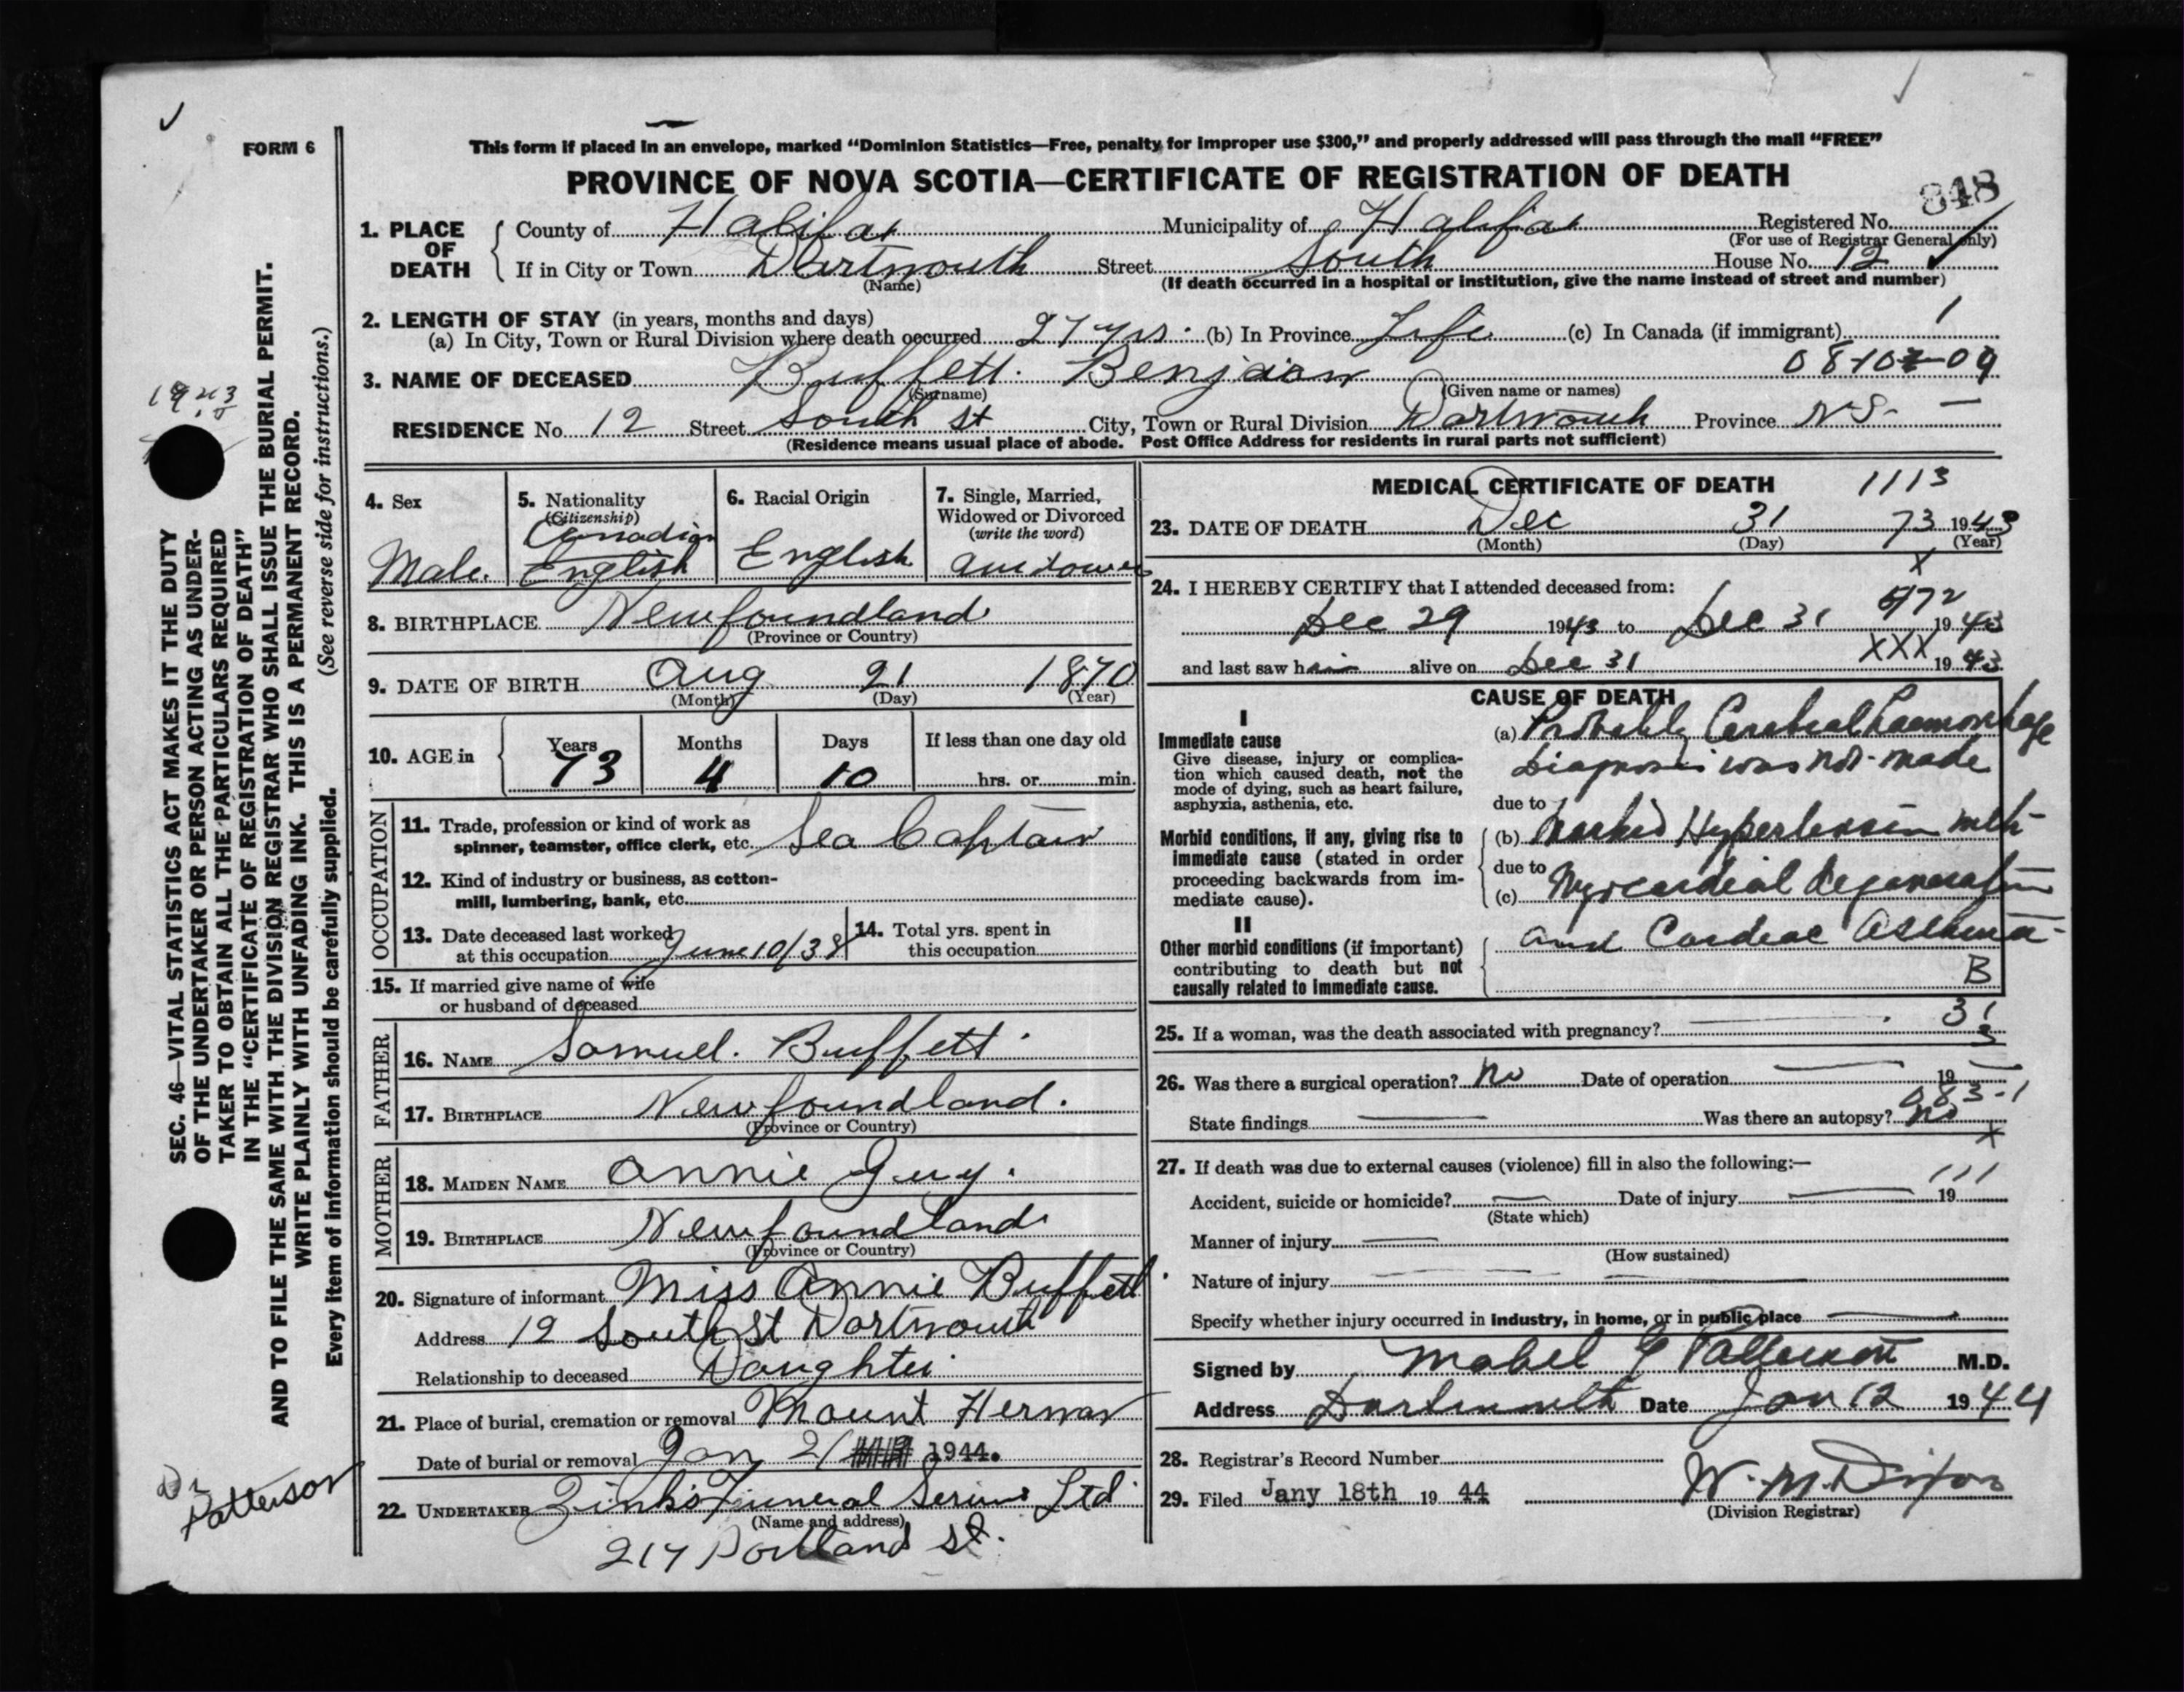 FORM 6
This form if placed in an envelope, marked “Dominion Statistics—Free, penalty for improper use $300,” and properly addressed will pass through the mail “FREE”
PROVINCE OF NOVA SCOTIA—CERTIFICATE OF REGISTRATION OF DEATH
848
1. PLACE OF DEATH
County of Halifax Municipality of Halifax Registered No.
(For use of Registrar General only)
If in City or Town Dartmouth Street South House No. 12
(Name) (If death occurred in a hospital or institution, give the name instead of street and number)
2. LENGTH OF STAY (in years, months and days)
(a) In City, Town or Rural Division where death occurred 27 yrs. (b) In Province Life (c) In Canada (if immigrant)
3. NAME OF DECEASED Buffett. Benjamin
(Surname) (Given name or names)
RESIDENCE No. 12 Street South St City, Town or Rural Division Dartmouth Province N.S.
(Residence means usual place of abode. Post Office Address for residents in rural parts not sufficient)
4. Sex
Male.
5. Nationality
(Citizenship)
Canadian
English
6. Racial Origin
English
7. Single, Married,
Widowed or Divorced
(write the word)
8. BIRTHPLACE Newfoundland
(Province or Country)
9. DATE OF BIRTH Aug 21 1870
(Month) (Day) (Year)
10. AGE in
Years Months Days If less than one day old
73 4 10 hrs. or min.
OCCUPATION
11. Trade, profession or kind of work as
spinner, teamster, office clerk, etc. Sea Captain
12. Kind of industry or business, as cotton-
mill, lumbering, bank, etc.
13. Date deceased last worked
at this occupation June 10/38
14. Total yrs. spent in
this occupation
15. If married give name of wife
or husband of deceased
FATHER
16. NAME Samuel. Buffett
17. BIRTHPLACE Newfoundland.
(Province or Country)
MOTHER
18. MAIDEN NAME Annie Guy.
19. BIRTHPLACE Newfoundland
(Province or Country)
20. Signature of informant Miss Annie Buffett
Address 12 South St Dartmouth
Relationship to deceased Daughter
21. Place of burial, cremation or removal Mount Herman
Date of burial or removal Jan 2/ 1944.
22. UNDERTAKER Zink's Funeral Service Ltd
(Name and address)
217 Portland St.
MEDICAL CERTIFICATE OF DEATH 1113
23. DATE OF DEATH Dec 31 73 1943
(Month) (Day) (Year)
X
24. I HEREBY CERTIFY that I attended deceased from:
Dec 29 1943 to Dec 31 1943
and last saw him alive on Dec 31 XXX 1943
CAUSE OF DEATH
I
Immediate cause
Give disease, injury or complica-
tion which caused death, not the
mode of dying, such as heart failure,
asphyxia, asthenia, etc.
(a) Probably Cerebral haemorrhage
Diagnosis was not made
due to
Morbid conditions, if any, giving rise to
immediate cause (stated in order
proceeding backwards from im-
mediate cause).
(b) Marked Hypertension with
due to
(c) Myocardial degeneration
II
Other morbid conditions (if important)
contributing to death but not
causally related to immediate cause.
and Cardiac Asthma
B
25. If a woman, was the death associated with pregnancy?
26. Was there a surgical operation? No Date of operation 19
083-1
State findings Was there an autopsy? No
X
27. If death was due to external causes (violence) fill in also the following:—
111
Accident, suicide or homicide? Date of injury 19
(State which)
Manner of injury
(How sustained)
Nature of injury
Specify whether injury occurred in industry, in home, or in public place
Signed by Mabel G Patterson M.D.
Address Dartmouth Date Jan 12 1944
28. Registrar's Record Number
29. Filed Jany 18th 19 44 W. M. Dixon
(Division Registrar)
SEC. 46—VITAL STATISTICS ACT MAKES IT THE DUTY
OF THE UNDERTAKER OR PERSON ACTING AS UNDER-
TAKER TO OBTAIN ALL THE PARTICULARS REQUIRED
IN THE “CERTIFICATE OF REGISTRATION OF DEATH”
AND TO FILE THE SAME WITH THE DIVISION REGISTRAR WHO SHALL ISSUE THE BURIAL PERMIT.
WRITE PLAINLY WITH UNFADING INK. THIS IS A PERMANENT RECORD.
Every item of information should be carefully supplied. (See reverse side for instructions.)
Dr
Patterson